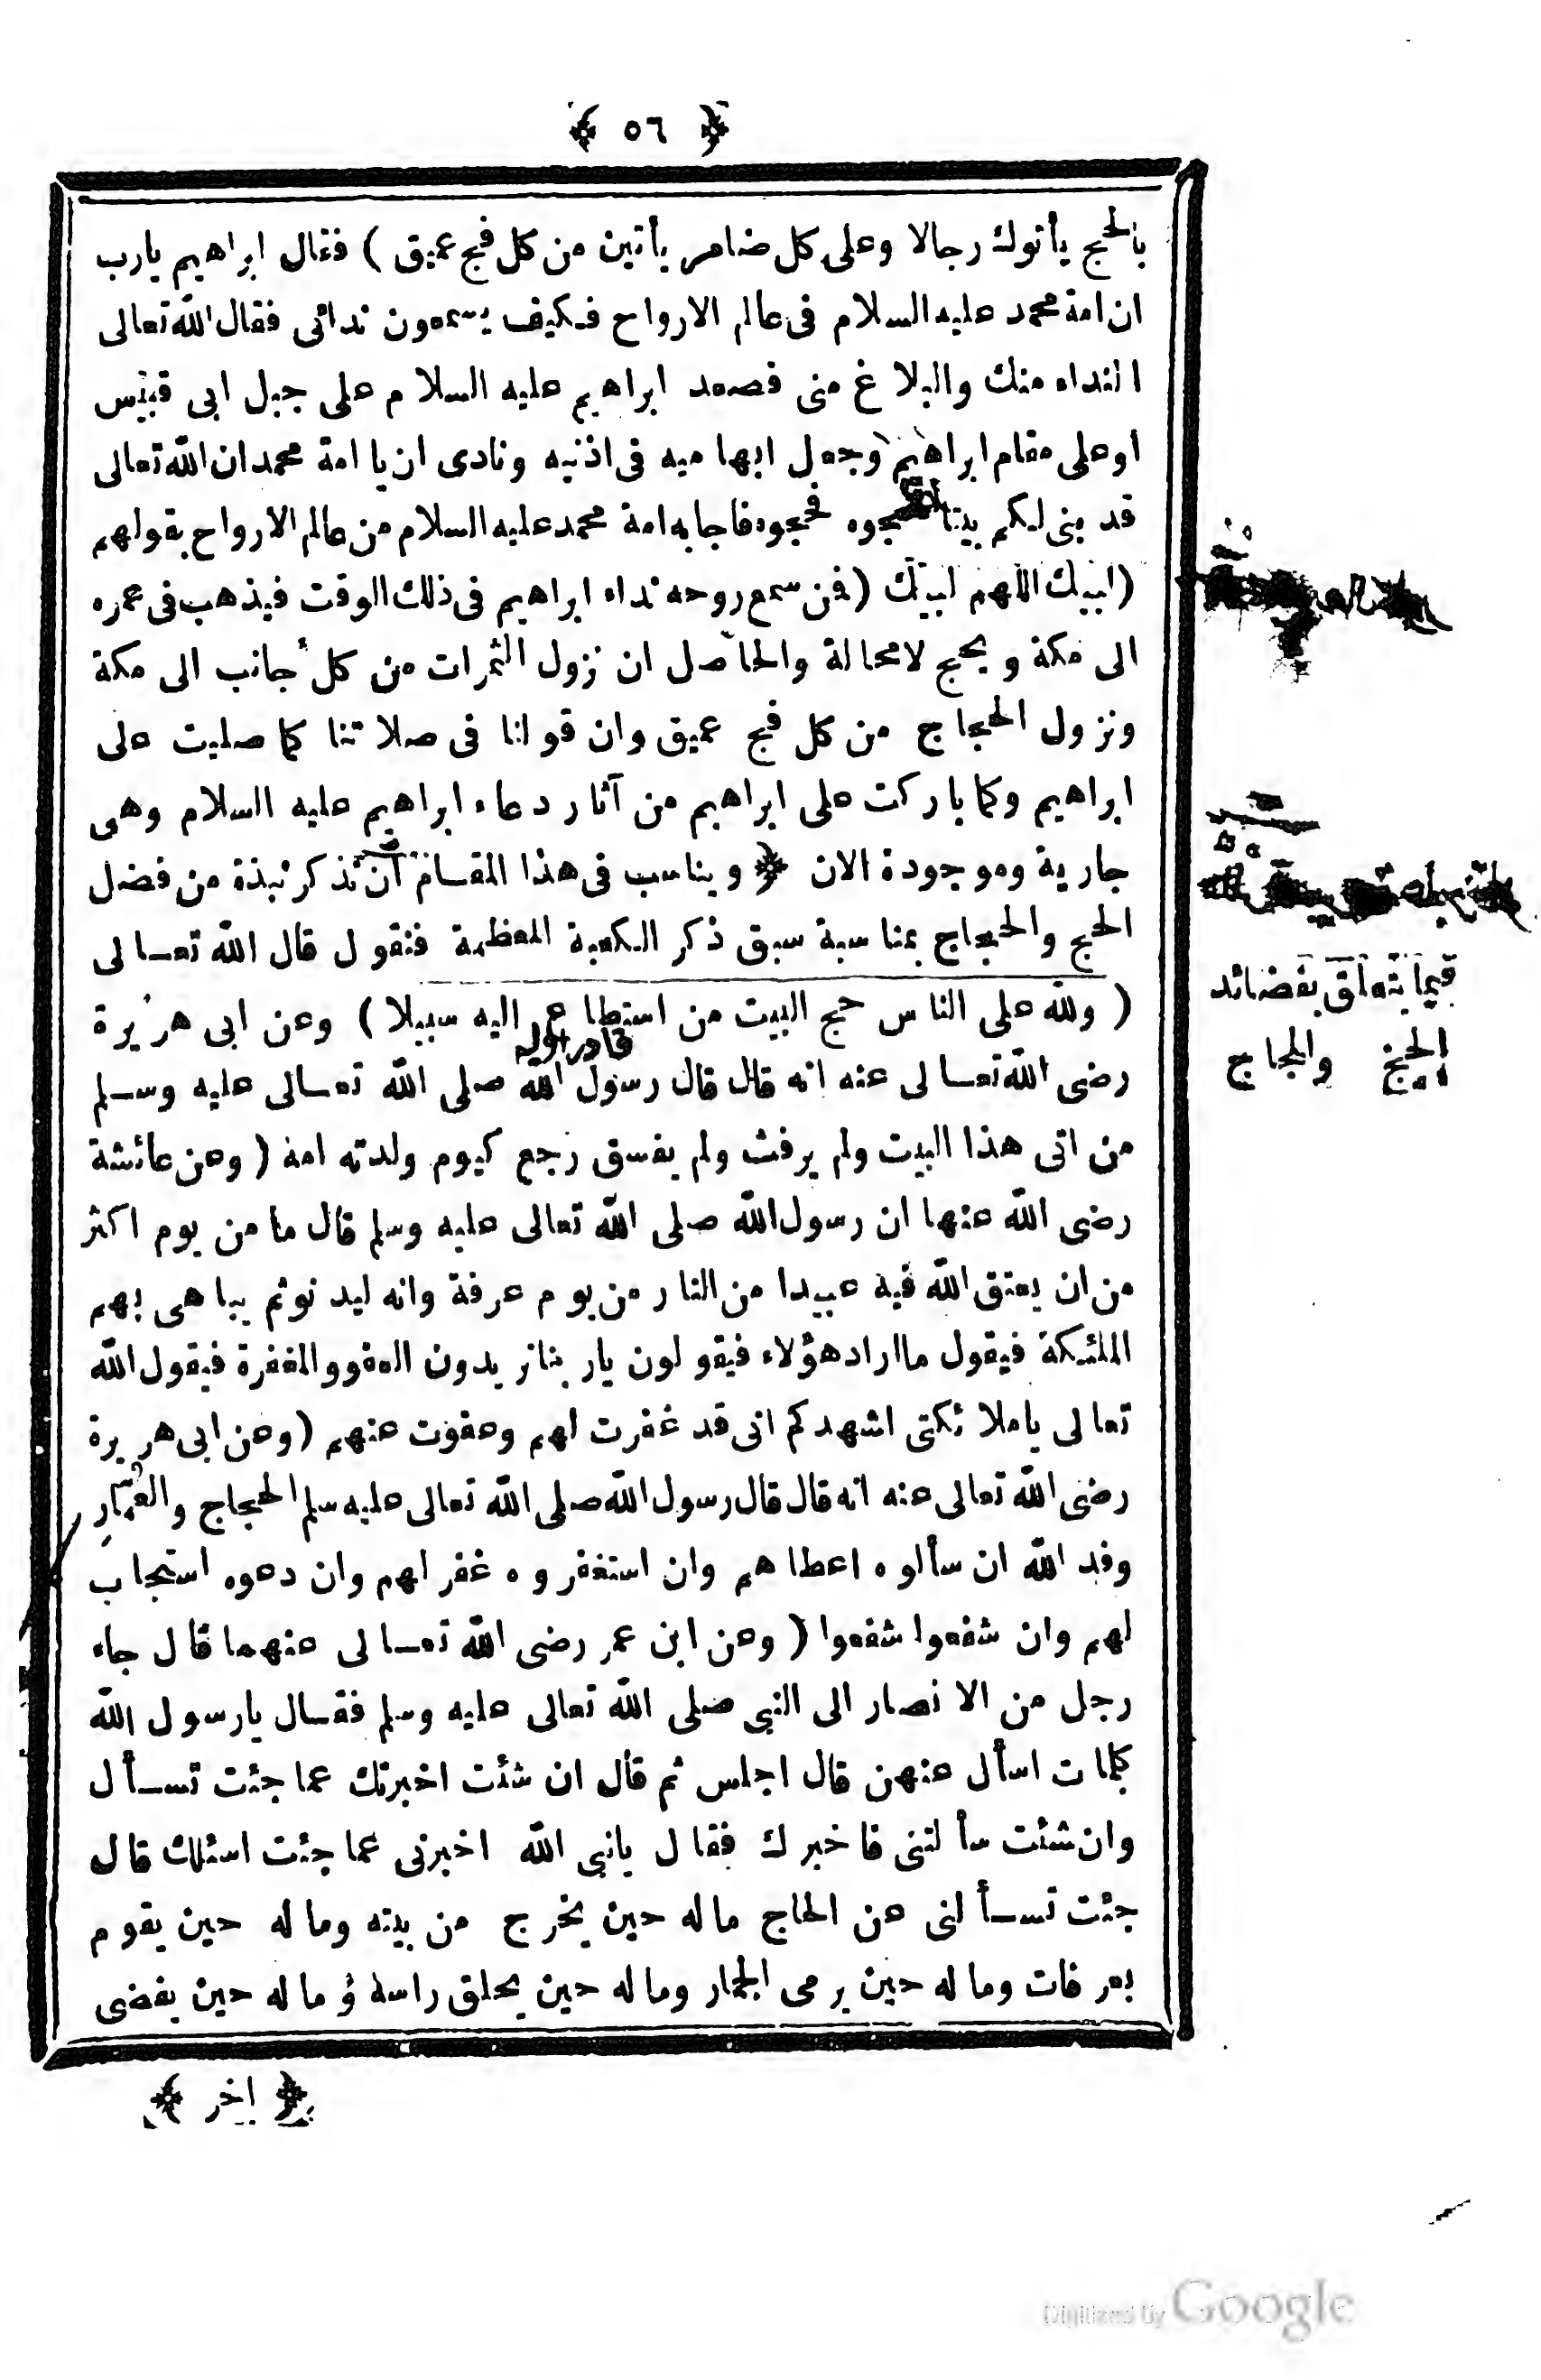 ﴿ ٥٦ ﴾
بالحج يأتوك رجالا وعلى كل ضامر يأتين من كل فج عميق ) فقال ابراهيم يارب
ان امة محمد عليه السلام فى عالم الارواح فكيف يسمعون ندائى فقال الله تعالى
النداء منك والبلاغ منى فصعد ابراهيم عليه السلام على جبل ابى قبيس
او على مقام ابراهيم وجعل ابهاميه فى اذنيه ونادى ان يا امة محمد ان الله تعالى
قد بنى لكم بيتا فحجوه فاجابه امة محمد عليه السلام من عالم الارواح بقولهم
( لبيك اللهم لبيك ( فمن سمع روحه نداء ابراهيم فى ذلك الوقت فيذهب فى عمره
الى مكة ويحج لا محالة والحاصل ان نزول الثمرات من كل جانب الى مكة
ونزول الحجاج من كل فج عميق وان قولنا فى صلاتنا كما صليت على
ابراهيم وكما باركت على ابراهيم من آثار دعاء ابراهيم عليه السلام وهى
جارية وموجودة الان ﴿ ويناسب فى هذا المقام ان نذكر نبذة من فضل
الحج والحجاج بمناسبة سبق ذكر الكعبة المعظمة فنقول قال الله تعالى
( ولله على الناس حج البيت من استطاع اليه سبيلا ) وعن ابى هريرة
رضى الله تعالى عنه انه قال قال رسول الله صلى الله تعالى عليه وسلم
من اتى هذا البيت ولم يرفث ولم يفسق رجع كيوم ولدته امه ( وعن عائشة
رضى الله عنها ان رسول الله صلى الله تعالى عليه وسلم قال ما من يوم اكثر
من ان يعتق الله فيه عبيدا من النار من يوم عرفة وانه ليدنو ثم يباهى بهم
الملئكة فيقول ما اراد هؤلاء فيقولون يا ربنا يريدون العفو والمغفرة فيقول الله
تعالى يا ملائكتى اشهدكم انى قد غفرت لهم وعفوت عنهم ( وعن ابى هريرة
رضى الله تعالى عنه انه قال قال رسول الله صلى الله تعالى عليه سلم الحجاج والعُمّارِ
وفد الله ان سألوه اعطاهم وان استغفروه غفر لهم وان دعوه استجاب
لهم وان شفعوا شفعوا ( وعن ابن عمر رضى الله تعالى عنهما قال جاء
رجل من الانصار الى النبى صلى الله تعالى عليه وسلم فقال يا رسول الله
كلمات اسأل عنهن قال اجلس ثم قال ان شئت اخبرتك عما جئت تسأل
وان شئت سألتنى فاخبرك فقال يا نبى الله اخبرنى عما جئت اسئلك قال
جئت تسألنى عن الحاج ماله حين يخرج من بيته وما له حين يقوم
بعرفات وما له حين يرمى الجمار وما له حين يحلق راسه وما له حين يقضى
﴿ اخر ﴾
فيما يتعلق بفضائد
الحج والحجاج
Digitized by Google